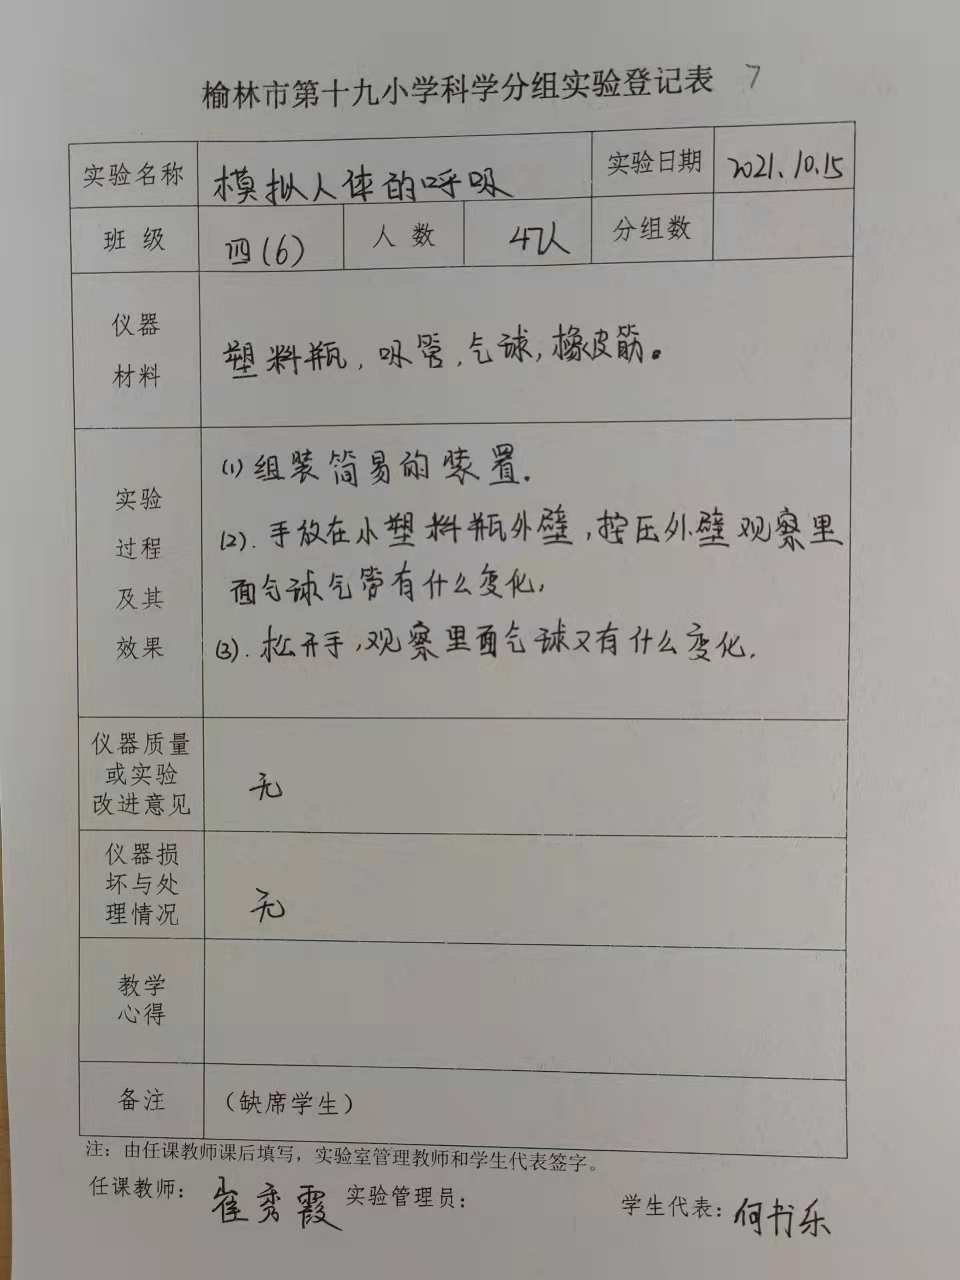 榆林市第十九小学科学分组实验登记表 7
实验名称 模拟人体的呼吸 实验日期 2021.10.15
班 级 四(6) 人 数 47人 分组数
仪器
材料
塑料瓶,吸管,气球,橡皮筋。
实验
过程
及其
效果
(1)组装简易的装置.
(2).手放在小塑料瓶外壁,按压外壁观察里
面气球气管有什么变化,
(3).松开手,观察里面气球又有什么变化.
仪器质量
或实验
改进意见
无
仪器损
坏与处
理情况
无
教学
心得
备注 (缺席学生)
注:由任课教师课后填写,实验室管理教师和学生代表签字。
任课教师:崔秀霞 实验管理员: 学生代表:何书乐